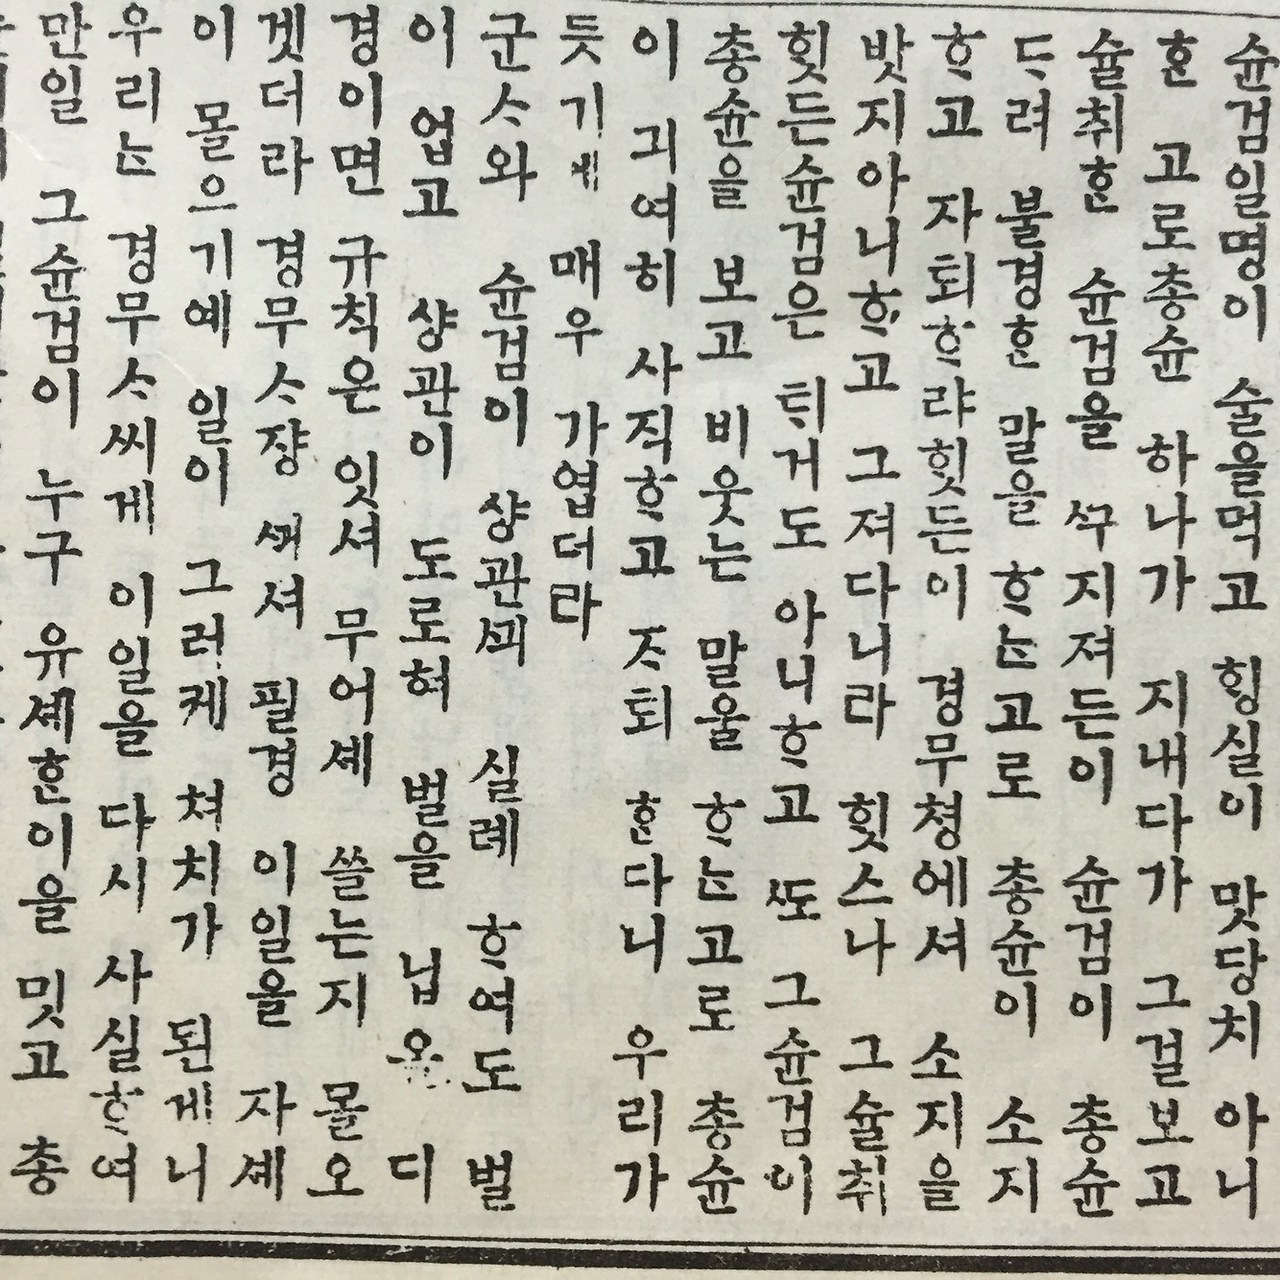 슌검일명이 술을먹고 ᄒᆡᆼ실이 맛당치 아니
ᄒᆞᆫ 고로총슌 하나가 지내다가 그걸보고
슐취ᄒᆞᆫ 슌검을 ᄭᅮ지져든이 슌검이 총슌
ᄃᆞ려 불경ᄒᆞᆫ 말을 ᄒᆞᄂᆞᆫ고로 총슌이 소지
ᄒᆞ고 자퇴ᄒᆞ랴ᄒᆡᆺ든이 경무쳥에셔 소지을
밧지아니ᄒᆞ고 그져다니라 ᄒᆡᆺ스나 그슐취
ᄒᆡᆺ든슌검은 ᄐᆈ거도 아니ᄒᆞ고 ᄯᅩ 그슌검이
총슌을 보고 비웃는 말울 ᄒᆞᄂᆞᆫ고로 총슌
이 긔여히 사직ᄒᆞ고 ᄌᆞ퇴 ᄒᆞᆫ다니 우리가
듯기에 매우 가엽더라
군ᄉᆞ와 슌검이 샹관ᄭᅴ 실례 ᄒᆞ여도 벌
이 업고 샹관이 도로혀 벌을 닙ᄋᆞᆯ 디
경이면 규칙은 잇셔 무어셰 쓸는지 몰오
겟더라 경무ᄉᆞ쟝 ᄭᅴ셔 필경 이일을 자셰
이 몰으기예 일이 그러케 쳐치가 된게니
우리ᄂᆞᆫ 경무ᄉᆞ씨게 이일을 다시 사실ᄒᆞ여
만일 그슌검이 누구 유셰ᄒᆞᆫ이을 밋고 총